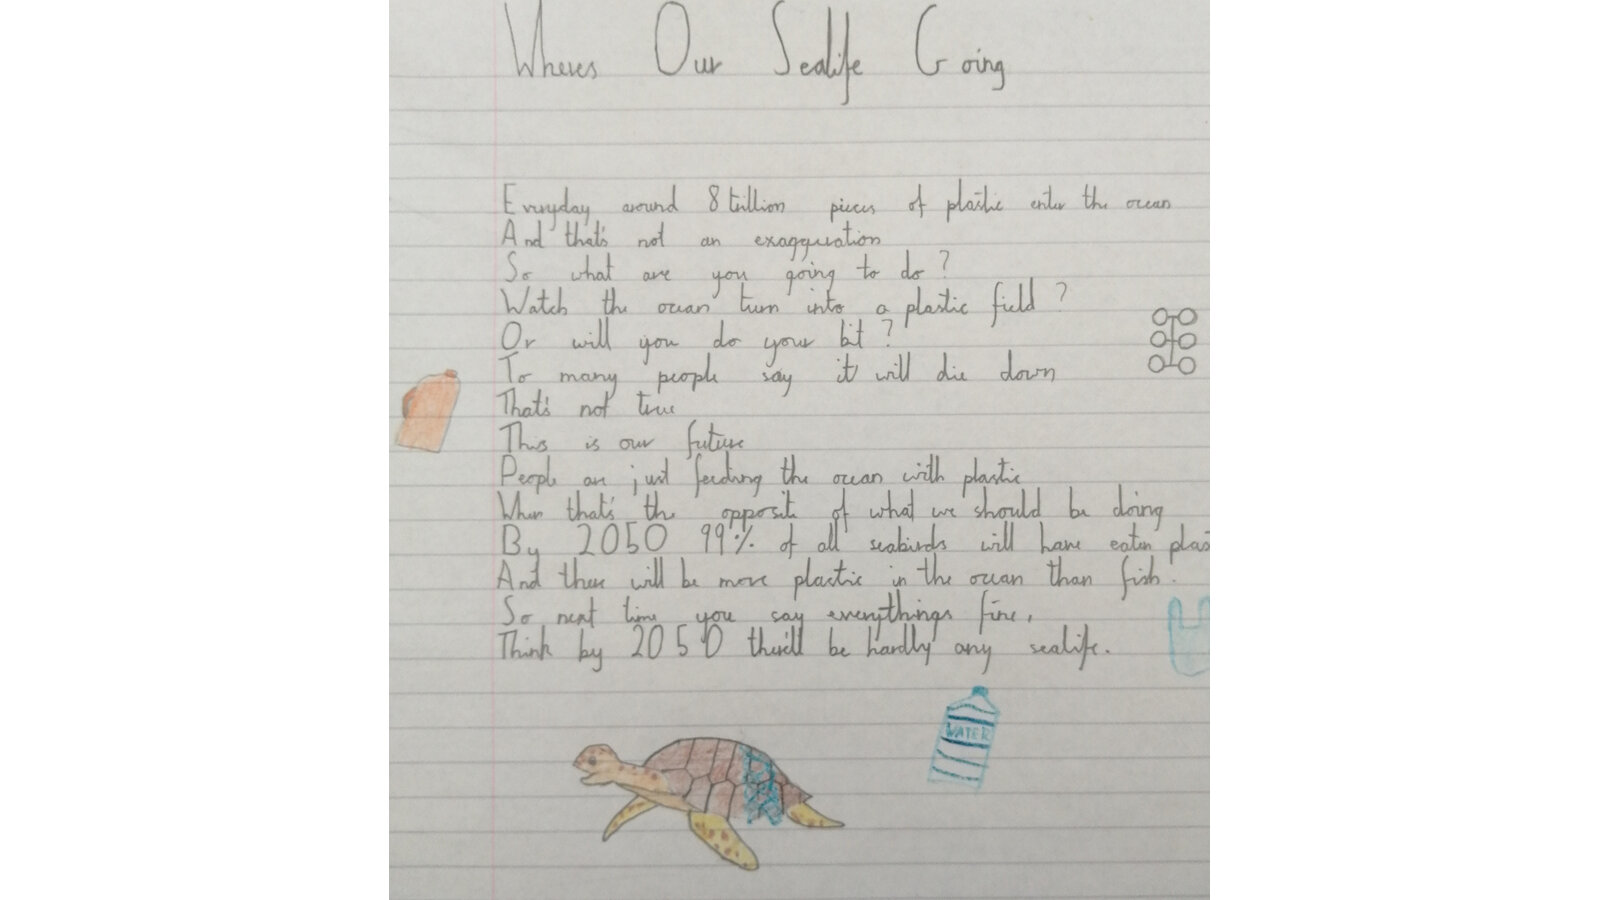 Wheres Our Sealife Going
Everyday around 8 trillion pieces of plastic enter the ocean
And that's not an exaggeration
So what are you going to do?
Watch the ocean turn into a plastic field?
Or will you do your bit?
To many people say it will die down
That's not true
This is our future
People are just feeding the ocean with plastic
When that's the opposite of what we should be doing
By 2050 99% of all seabirds will have eaten plas
And there will be more plastic in the ocean than fish.
So next time you say everythings fine,
Think by 2050 there'll be hardly any sealife.
WATER